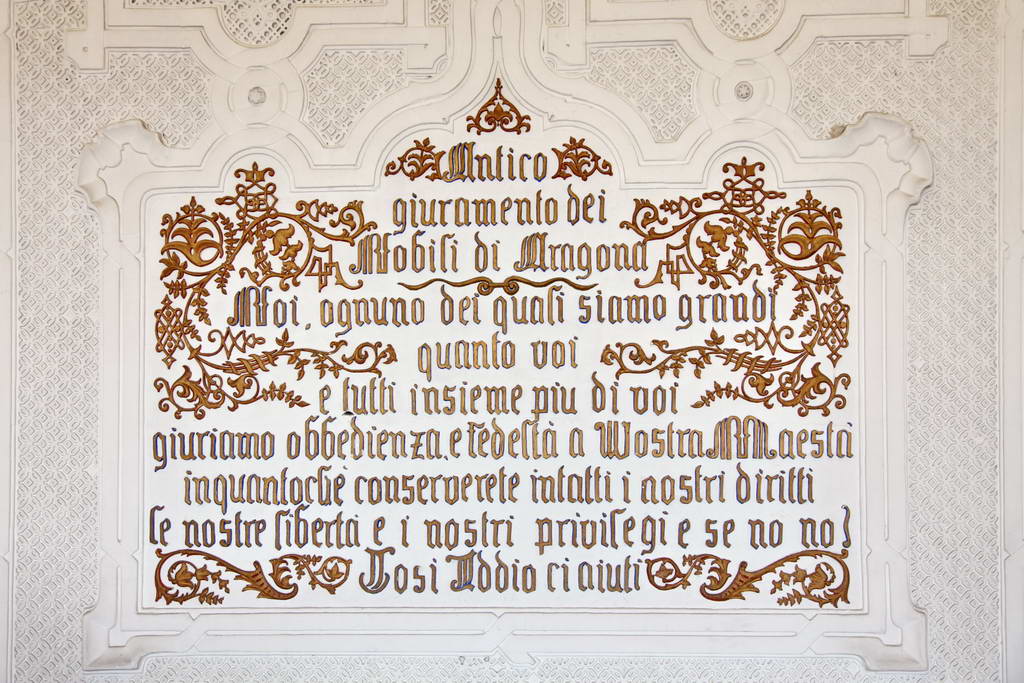 Antico
giuramento dei
Nobili di Aragona
Noi, ognuno dei quali siamo grandi
quanto voi
e tutti insieme piu di voi
giuriamo obbedienza e fedeltà a Vostra Maestà
inquantochè conserverete intatti i nostri diritti
le nostre libertà e i nostri privilegi e se no no!
Così Iddio ci aiuti